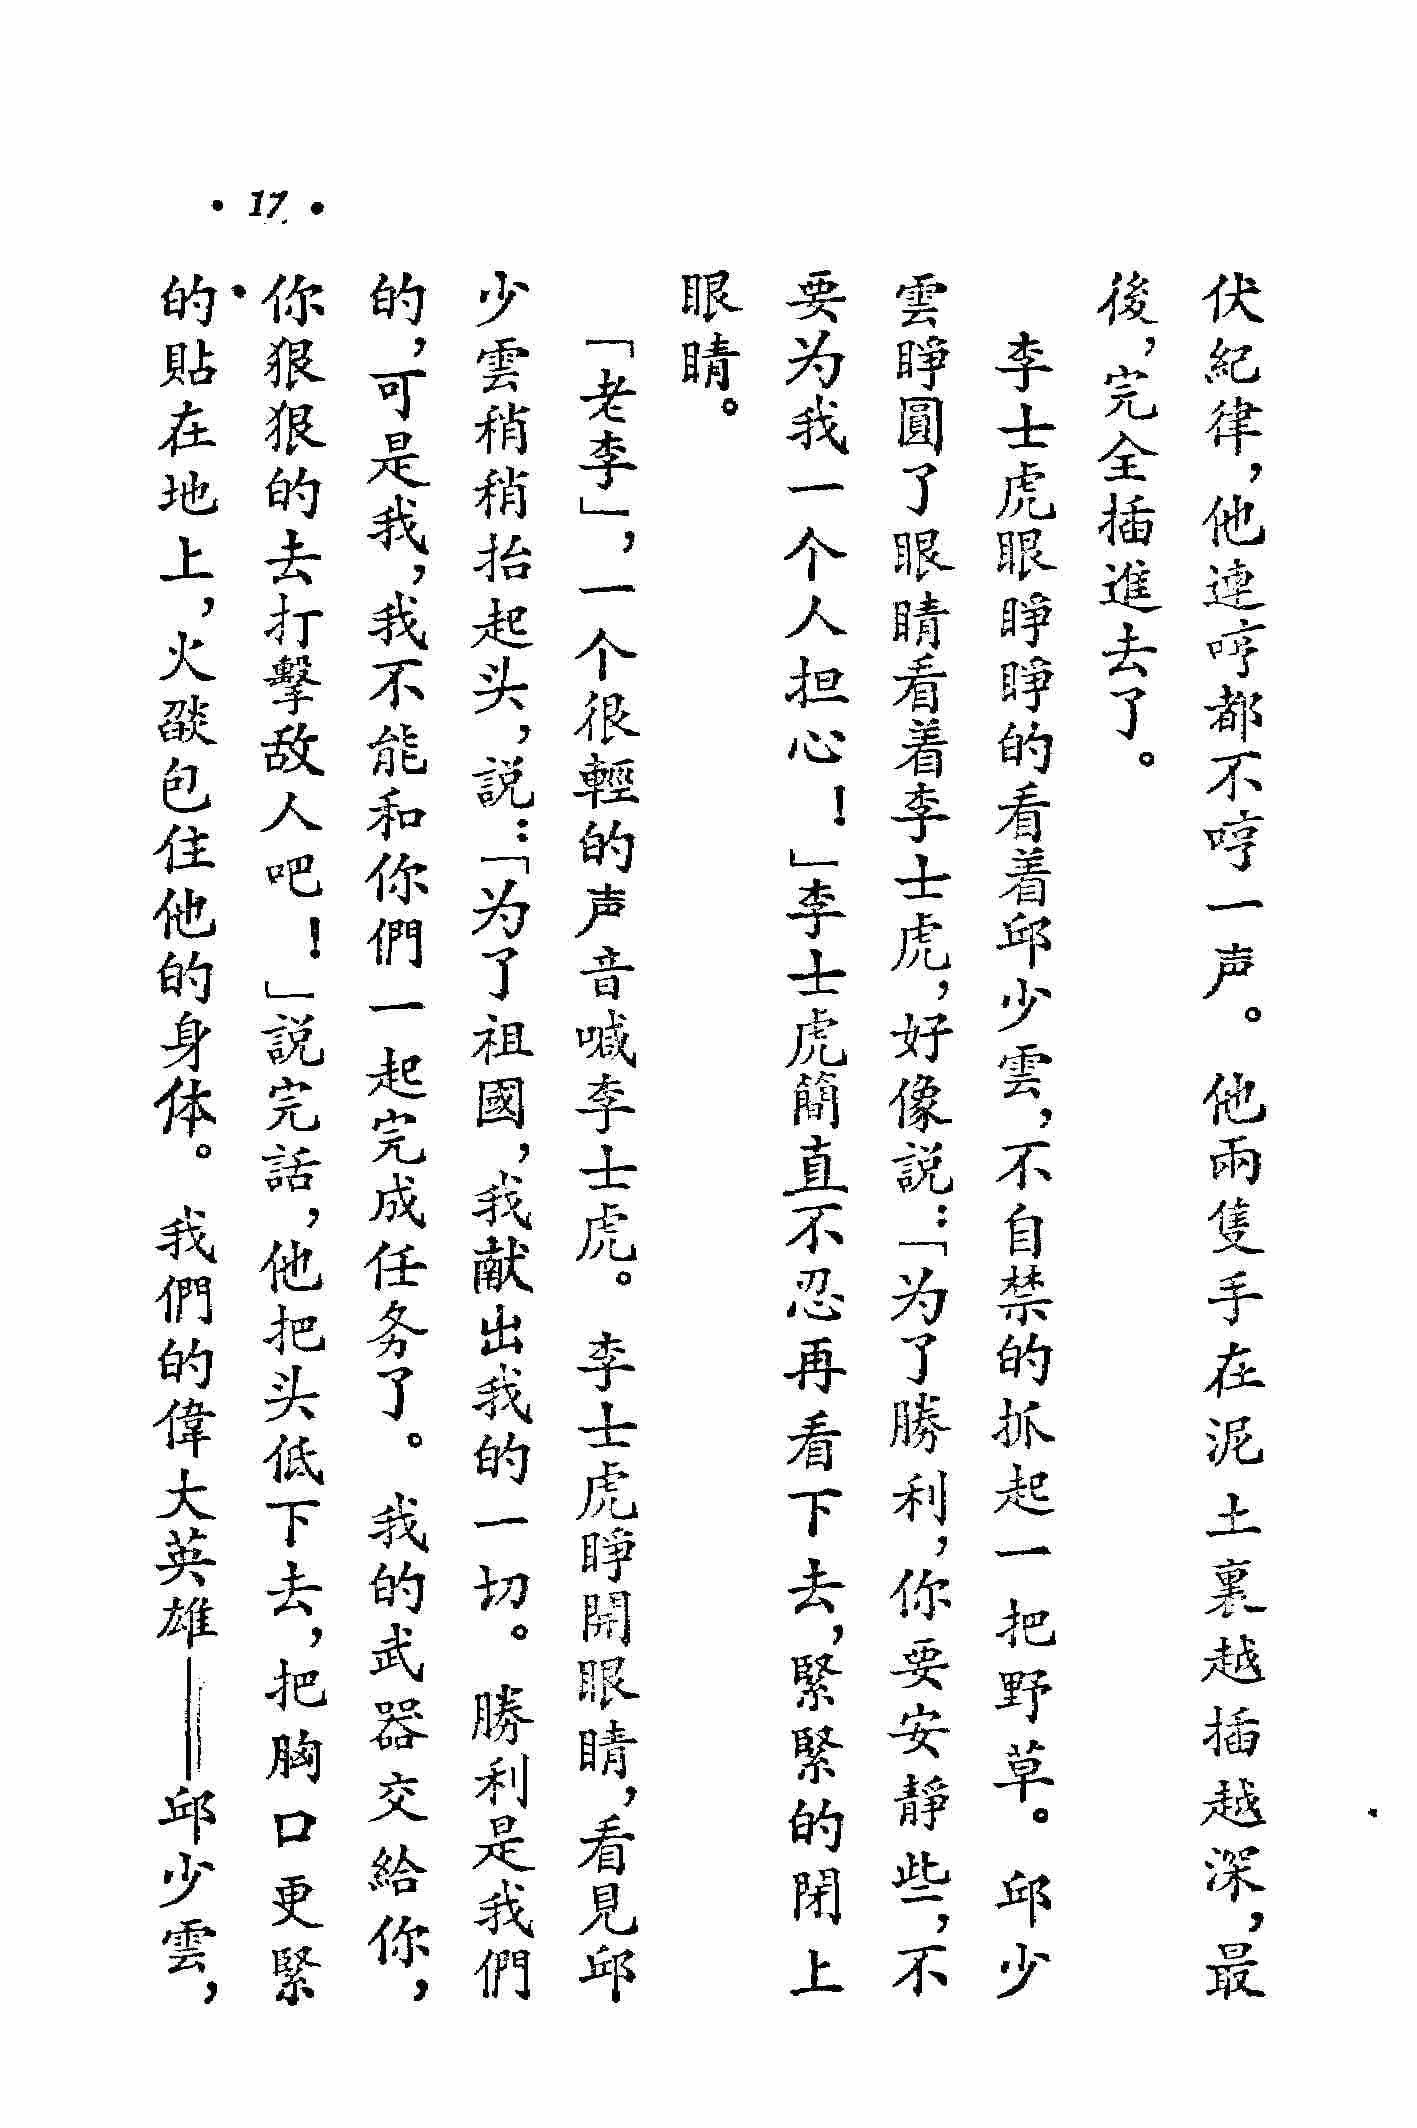 伏紀律，他連哼都不哼一声。他兩隻手在泥土裏越插越深，最
後，完全插進去了。
李士虎眼睜睜的看着邱少雲，不自禁的抓起一把野草。邱少
雲睜圓了眼睛看着李士虎，好像説：「为了勝利，你要安靜些，不
要为我一个人担心！」李士虎簡直不忍再看下去，緊緊的閉上
眼睛。
「老李」，一个很輕的声音喊李士虎。李士虎睜開眼睛，看見邱
少雲稍稍抬起头，説：「为了祖國，我献出我的一切。勝利是我們
的，可是我，我不能和你們一起完成任务了。我的武器交給你，
你狠狠的去打擊敌人吧！」説完話，他把头低下去，把胸口更緊
的貼在地上，火燄包住他的身体。我們的偉大英雄——邱少雲，
• 17 •